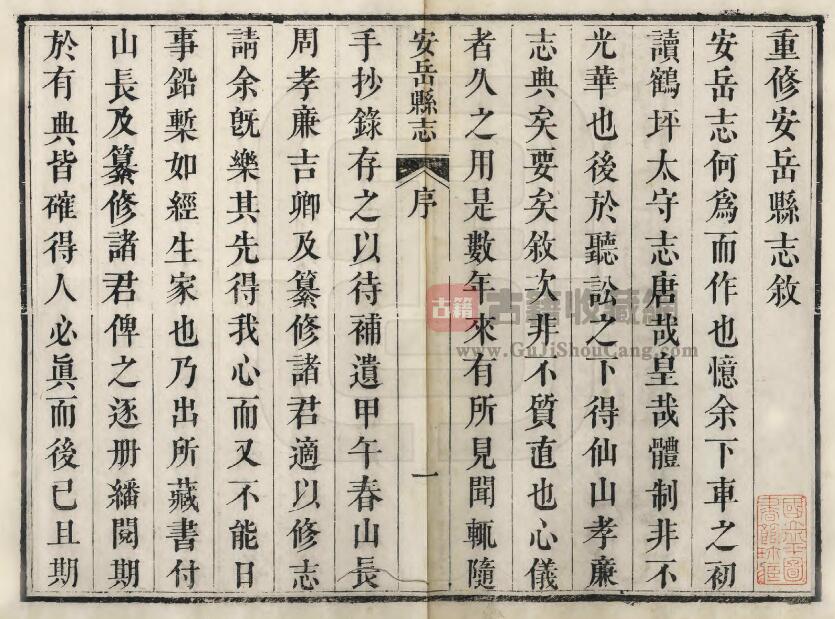 重修安岳縣志敘
安岳志何為而作也憶余下車之初
讀鶴坪太守志唐哉皇哉體制非不
光華也後於聽訟之下得仙山孝廉
志典矣要矣敘次非不質直也心儀
者久之用是數年來有所見聞輒隨
安岳縣志
序
一
手抄錄存之以待補遺甲午春山長
周孝廉吉卿及纂修諸君適以修志
請余旣樂其先得我心而又不能日
事鉛槧如經生家也乃出所藏書付
山長及纂修諸君俾之逐册繙閱期
於有典皆確得人必眞而後已且期
古籍
古籍收藏網
www.GuJiShouCang.com